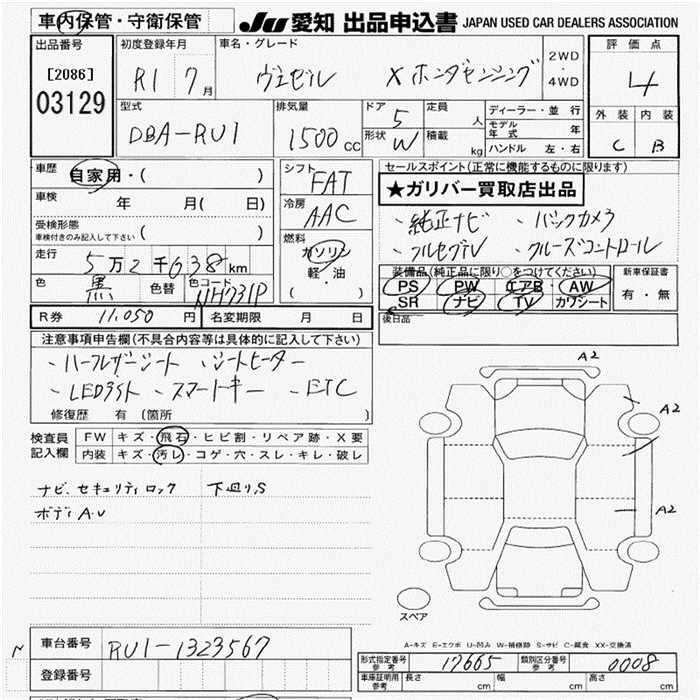 車内保管・守衛保管
JU 愛知 出品申込書 JAPAN USED CAR DEALERS ASSOCIATION
出品番号
[2086]
03129
初度登録年月
R1 7月
車名・グレード
ヴェゼル X ホンダセンシング
2WD
・
4WD
評価点
4
外装 内装
C B
型式
DBA-RU1
排気量
1500 cc
ドア
5
形状 W
定員
人
積載
kg
ディーラー・並行
モデル年式 年
ハンドル 左・右
車歴
自家用・( )
車検
年 月( 日)
受検形態
車検付きのみ記入して下さい ( )
走行
5万2千638km
色
黒
色替
色コード
NH731P
シフト
FAT
冷房
AAC
燃料
ガソリン
軽・油
・
( )
セールスポイント(正常に機能するものに限ります)
★ガリバー買取店出品
・純正ナビ ・バックカメラ
・フルセグTV ・クルーズコントロール
装備品(純正品に限り○をつけてください)
PS PW エアB AW
SR ナビ TV カワシート
新車保証書
有・無
後日品
R券 11,050 円
名変期限 月 日
注意事項申告欄(不具合内容等は具体的に記入して下さい)
・ハーフレザーシート ・シートヒーター
・LEDライト ・スマートキー ・ETC
修復歴 有 (箇所 )
検査員
記入欄
FW キズ・飛石・ヒビ割・リペア跡・X要
内装 キズ・汚レ・コゲ・穴・スレ・キレ・破レ
ナビ、セキュリティロック 下廻り、S
ボディA・U
A2
A2
A2
スペア
A-キズ E-エクボ U-凹み W-補修跡 S-サビ C-腐食 XX-交換済
N
車台番号
RU1-1323567
登録番号
形式指定番号
参考
17665
類別区分番号
参考
0008
車庫証明用
参考
長さ cm
幅 cm
高さ cm